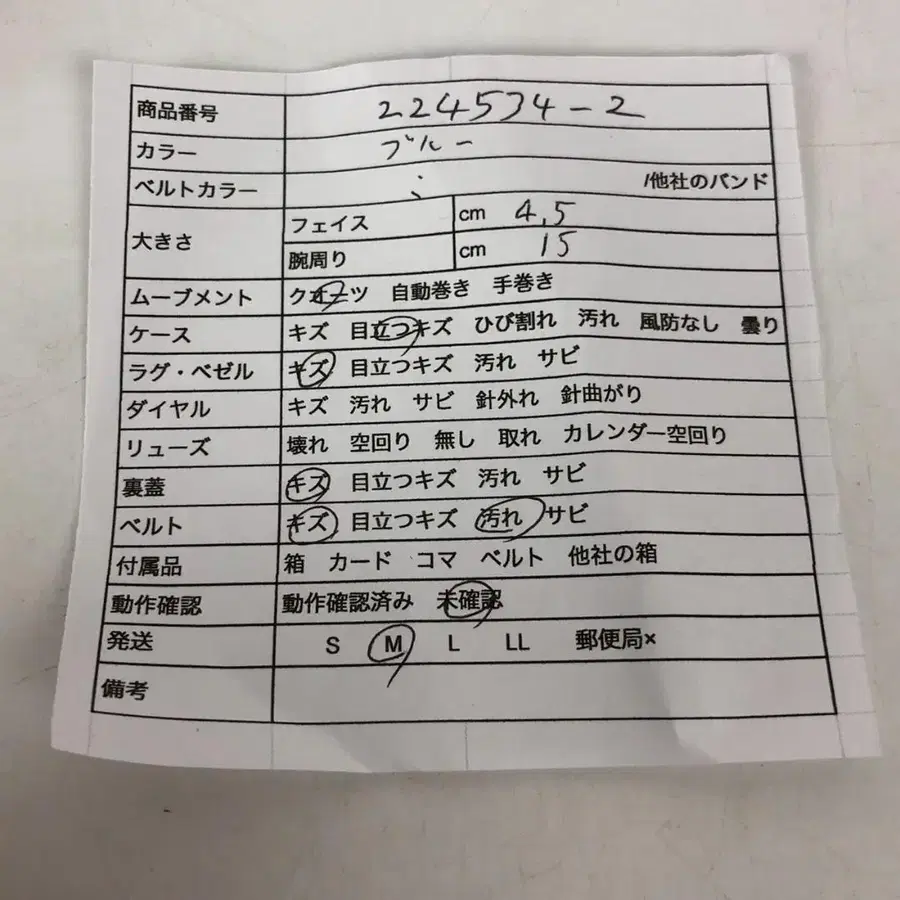 商品番号 224534-2
カラー ブルー
ベルトカラー ミ /他社のバンド
大きさ フェイス cm 4.5
腕周り cm 15
ムーブメント クオーツ 自動巻き 手巻き
ケース キズ 目立つキズ ひび割れ 汚れ 風防なし 曇り
ラグ・ベゼル キズ 目立つキズ 汚れ サビ
ダイヤル キズ 汚れ サビ 針外れ 針曲がり
リューズ 壊れ 空回り 無し 取れ カレンダー空回り
裏蓋 キズ 目立つキズ 汚れ サビ
ベルト キズ 目立つキズ 汚れ サビ
付属品 箱 カード コマ ベルト 他社の箱
動作確認 動作確認済み 未確認
発送 S M L LL 郵便局×
備考